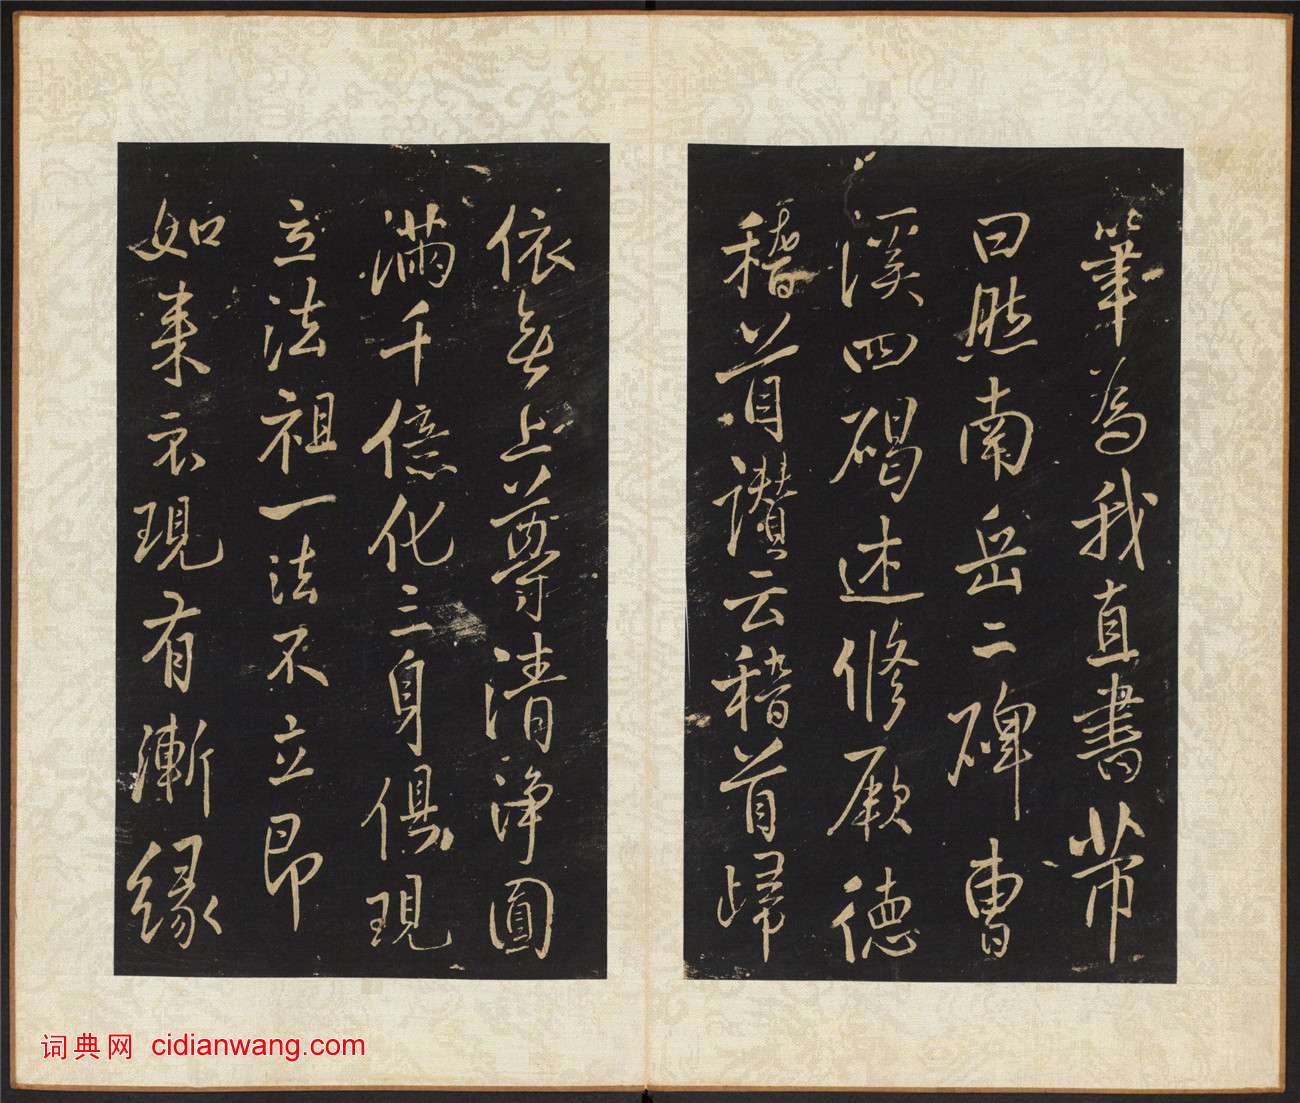 筆為我直書常
曰然南岳二碑曹
溪四碣述修厥德
稽首讃云稽首歸
依無上尊清淨圓
滿千億化三身俱現
立法祖一法不立即
如来衣現有漸緣
词典网 cidianwang.com